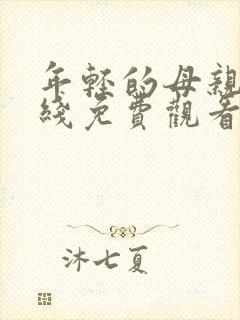 年輕的母親
綫免費觀看
沐七夏